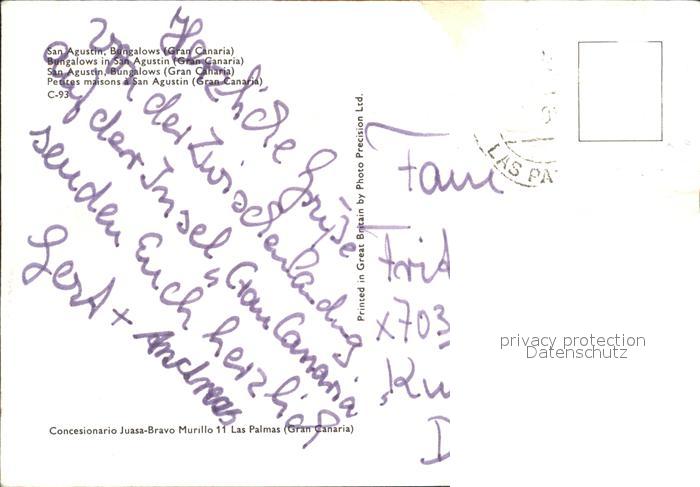 San Agustin, Bungalows (Gran Canaria)
Bungalows in San Agustin (Gran Canaria)
San Agustin, Bungalows (Gran Canaria)
Petites maisons a San Agustin (Gran Canaria)
C-93
Herzliche Grüße
von der Zwischenlandung
auf der Insel "Gran Canaria
senden Euch herzlich
Gert + Andreas
Concesionario Juasa-Bravo Murillo 11 Las Palmas (Gran Canaria)
Printed in Great Britain by Photo Precision Ltd.
LAS PA
Fam
Frit
x703
"Ku
D
privacy protection
Datenschutz